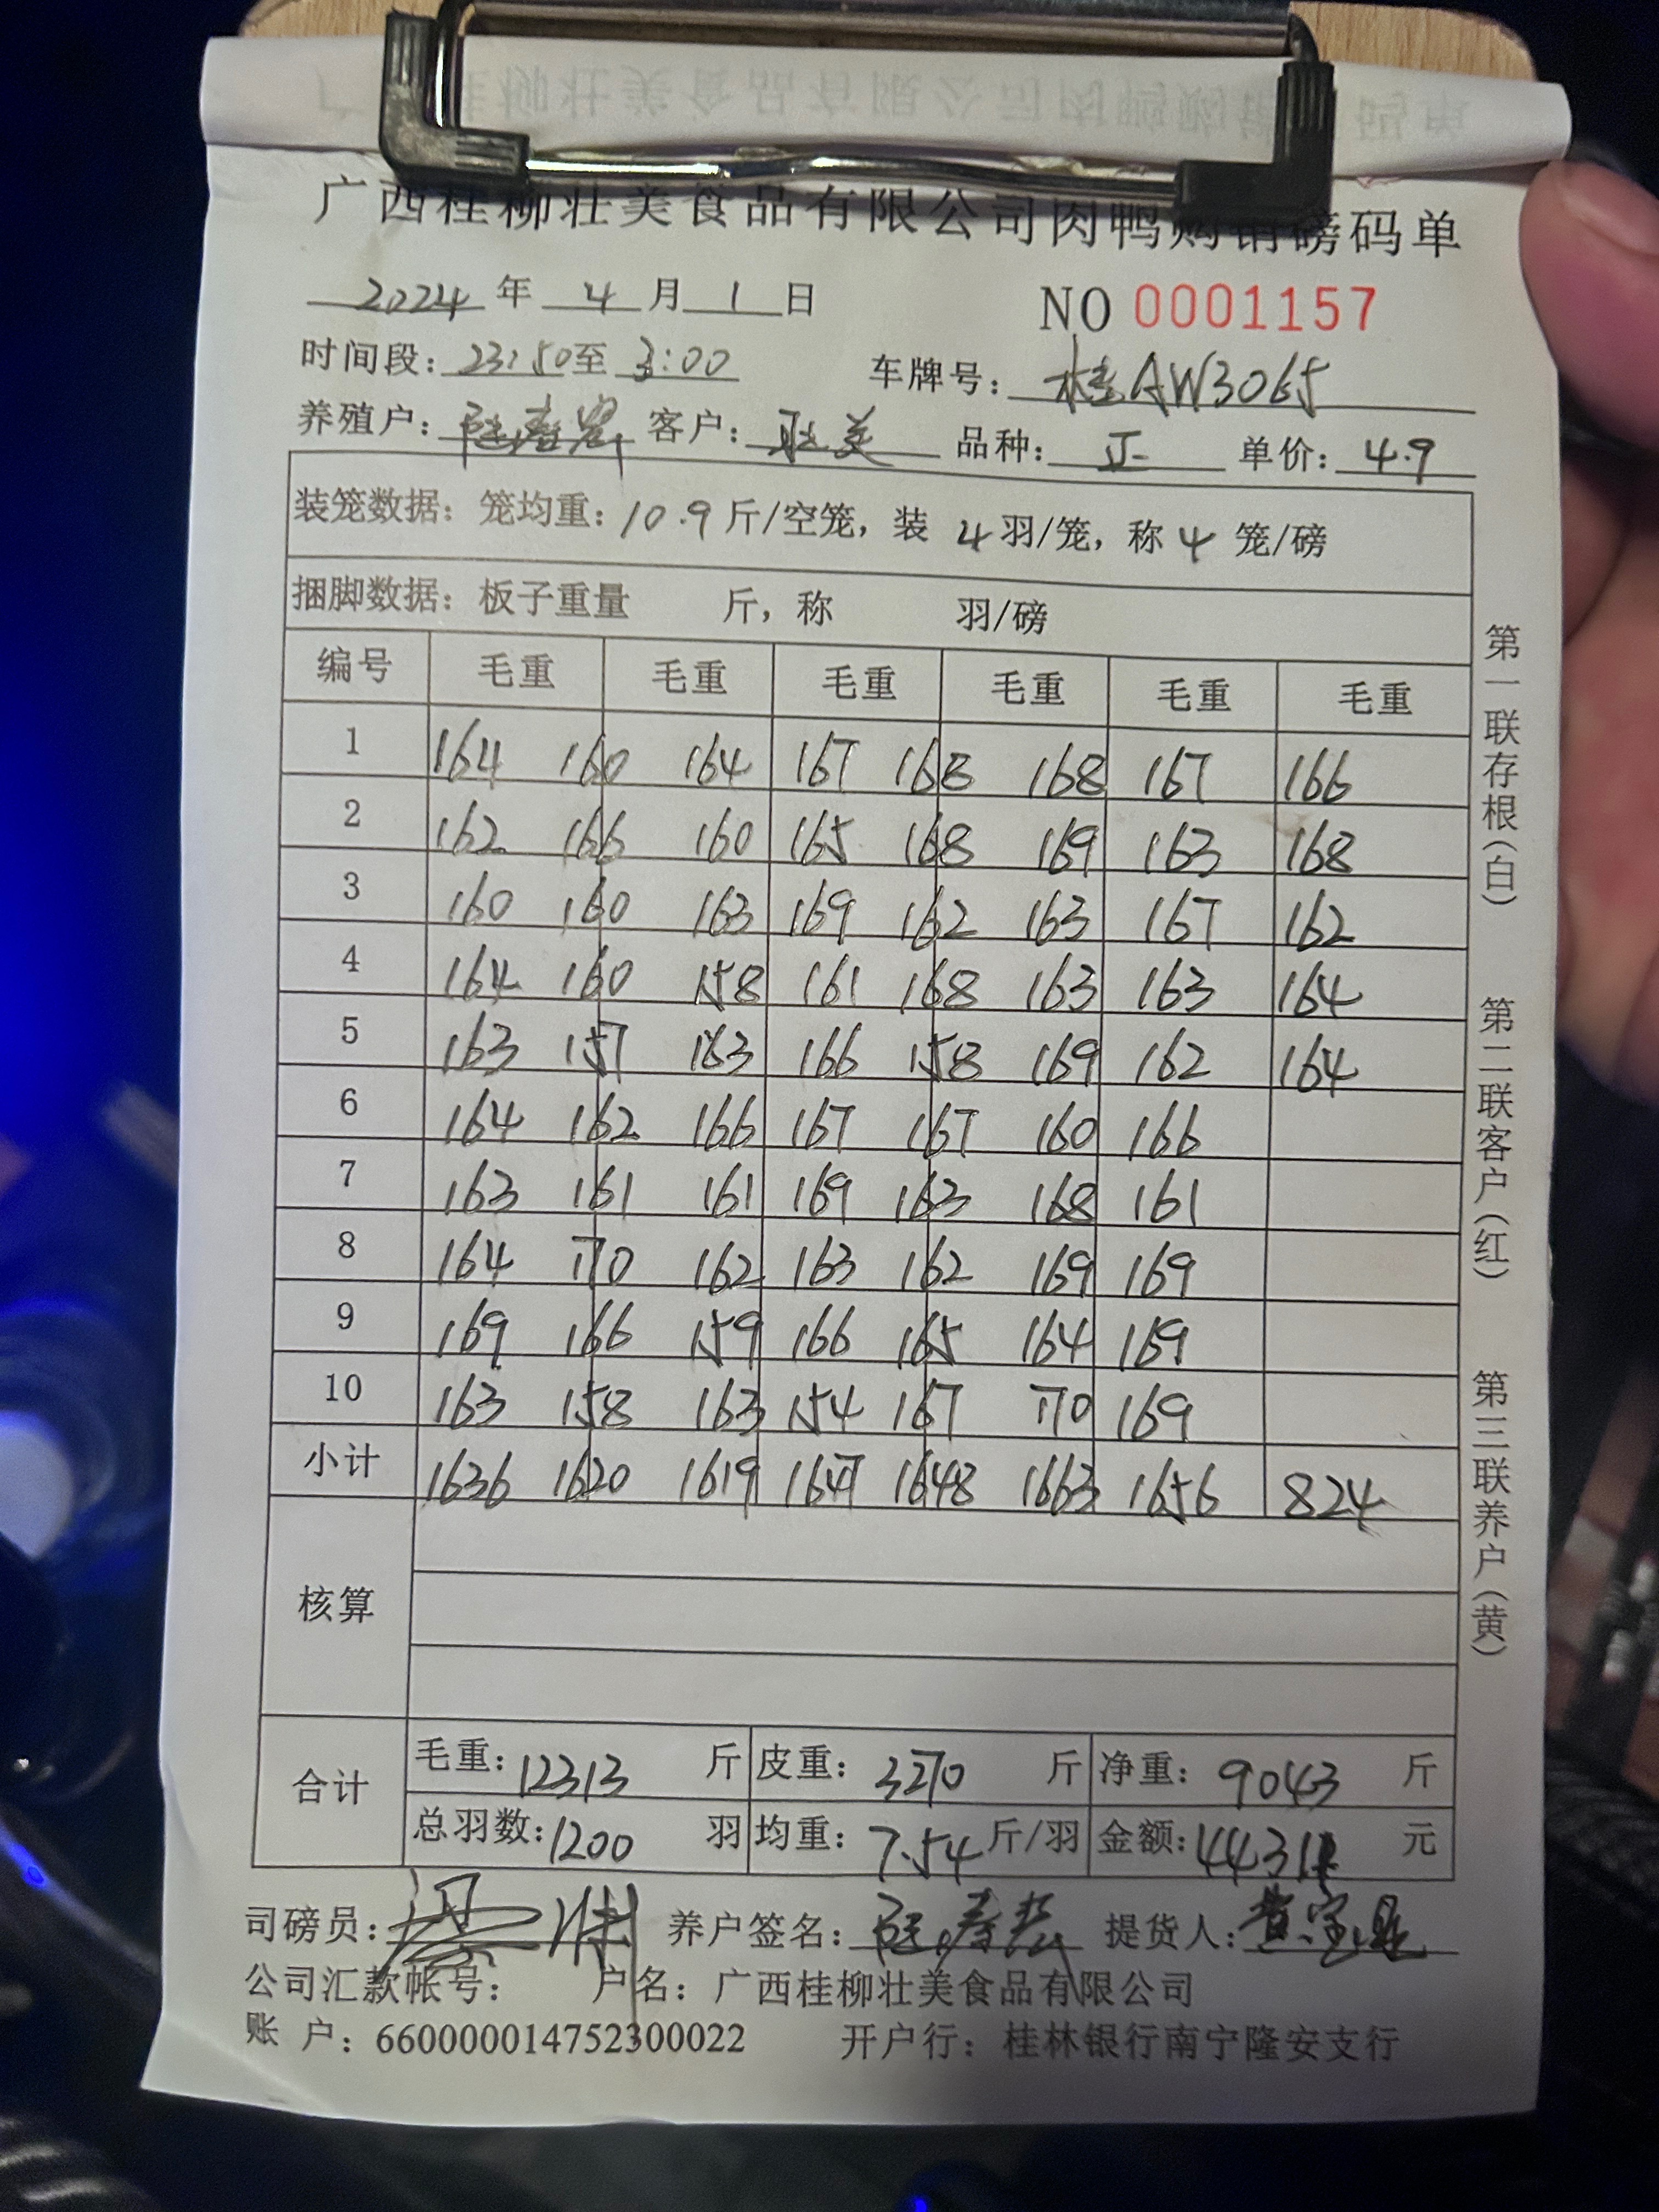 广西桂柳壮美食品有限公司肉鸭购销磅码单
2024 年 4 月 1 日 NO 0001157
时间段：23:50至 3:00 车牌号：桂AW3065
养殖户： 客户：耿美 品种：正 单价：4.9
装笼数据：笼均重：10.9 斤/空笼，装 4 羽/笼，称 4 笼/磅
捆脚数据：板子重量 斤，称 羽/磅
编号 毛重 毛重 毛重 毛重 毛重 毛重
1 164 160 164 167 168 168 167 166
2 162 166 160 165 168 169 163 168
3 160 160 163 169 162 163 167 162
4 164 160 158 161 168 163 163 164
5 163 157 163 166 158 169 162 164
6 164 162 166 167 167 160 166
7 163 161 161 169 163 168 161
8 164 170 162 163 162 169 169
9 169 166 159 166 165 164 169
10 163 158 163 154 167 170 169
小计 1636 1620 1619 1647 1648 1663 1656 824
核算
合计 毛重：12313 斤 皮重：3270 斤 净重：9043 斤
总羽数：1200 羽 均重：7.54 斤/羽 金额：44311 元
司磅员： 养户签名： 提货人：
公司汇款帐号： 户名：广西桂柳壮美食品有限公司
账 户：660000014752300022 开户行：桂林银行南宁隆安支行
第一联存根（白）
第二联客户（红）
第三联养户（黄）